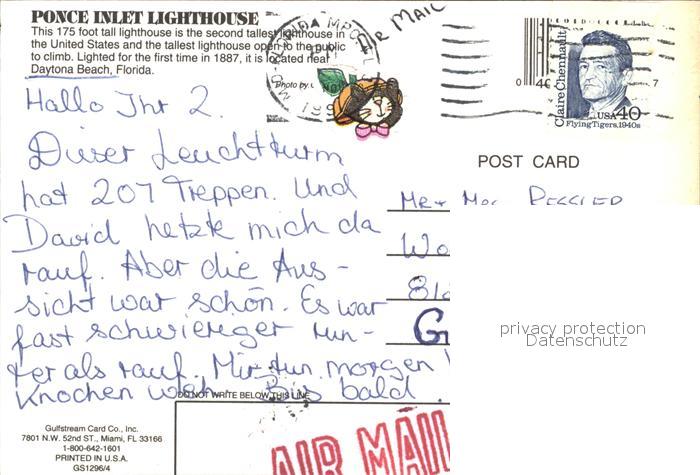 PONCE INLET LIGHTHOUSE
This 175 foot tall lighthouse is the second tallest lighthouse in
the United States and the tallest lighthouse open to the public
to climb. Lighted for the first time in 1887, it is located near
Daytona Beach, Florida.
Photo by:
AIR MAIL
Hallo Ihr 2.
Dieser Leuchtturm
hat 207 Treppen. Und
David hetzte mich da
rauf. Aber die Aus-
sicht war schön. Es war
fast schwiereger run-
ter als rauf. Mir tun morgen
Knochen weh. Bis bald.
DO NOT WRITE BELOW THIS LINE
Claire Chennault
USA 40
Flying Tigers, 1940s
POST CARD
Mr +
Wo
81
G
privacy protection
Datenschutz
Gulfstream Card Co., Inc.
7801 N.W. 52nd ST., Miami, FL 33166
1-800-642-1601
PRINTED IN U.S.A.
GS1296/4
AIR MAIL